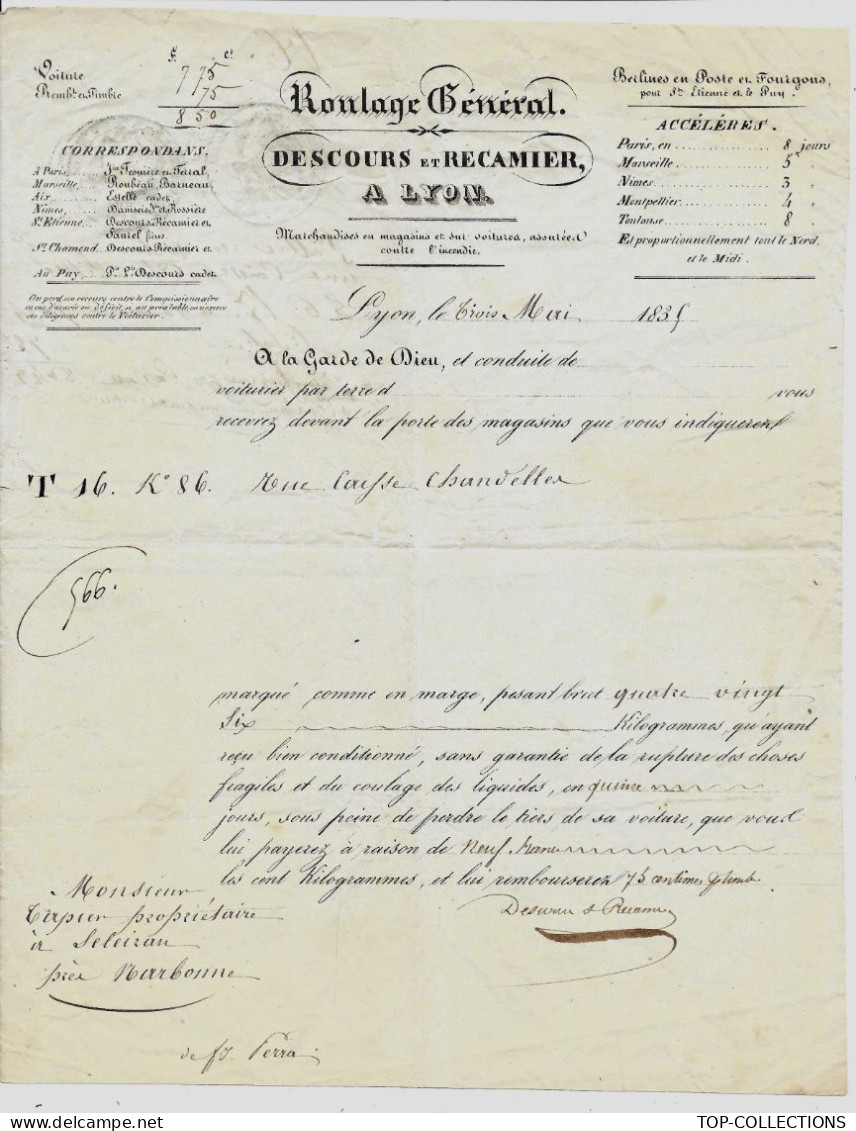 Voiture 7 75
Rembt. et Timbre 75
8 50
CORRESPONDANS.
A Paris, Jm. Fesnière et Ferral
Marseille, Roubeau Barneau,
Aix, Estelle cadet
Nîmes, et Rossière
St. Etienne, Descours Récamier et
Faurel fils
St. Chamond, Descours Récamier et
Au Puy, Descours cadet.
On perd son recours contre le Commissionnaire
en cas d'avarie ou déficit, si au préalable, on n'exerce
ses diligences contre le Voiturier.
Roulage Général.
DESCOURS ET RECAMIER,
A LYON.
Marchandises en magasins et sur voitures, assurées
contre l'incendie.
Berlines en Poste et Fourgons,
pour St. Etienne et le Puy.
ACCÉLÉRES.
Paris, en 8 jours
Marseille 5 "
Nimes 3 "
Montpellier 4 "
Toulouse 8 "
Et proportionnellement tout le Nord
et le Midi.
Lyon, le trois Mai 1835
A la Garde de Dieu, et conduite de
voiturier par terre d vous
recevrez devant la porte des magasins que vous indiquerez
T 16. Ko 86. Une Caisse Chandelles
566.
marqué comme en marge, pesant brut quatre vingt
Six Kilogrammes, qu'ayant
reçu bien conditionné, sans garantie de la rupture des choses
fragiles et du coulage des liquides, en quinze
jours, sous peine de perdre le tiers de sa voiture, que vous
lui payerez à raison de Neuf francs
les cent Kilogrammes, et lui rembourserez 75 centimes
Descours & Recamier
Monsieur
propriétaire
à
près Narbonne
de fs. Ferra
TOP-COLLECTIONS